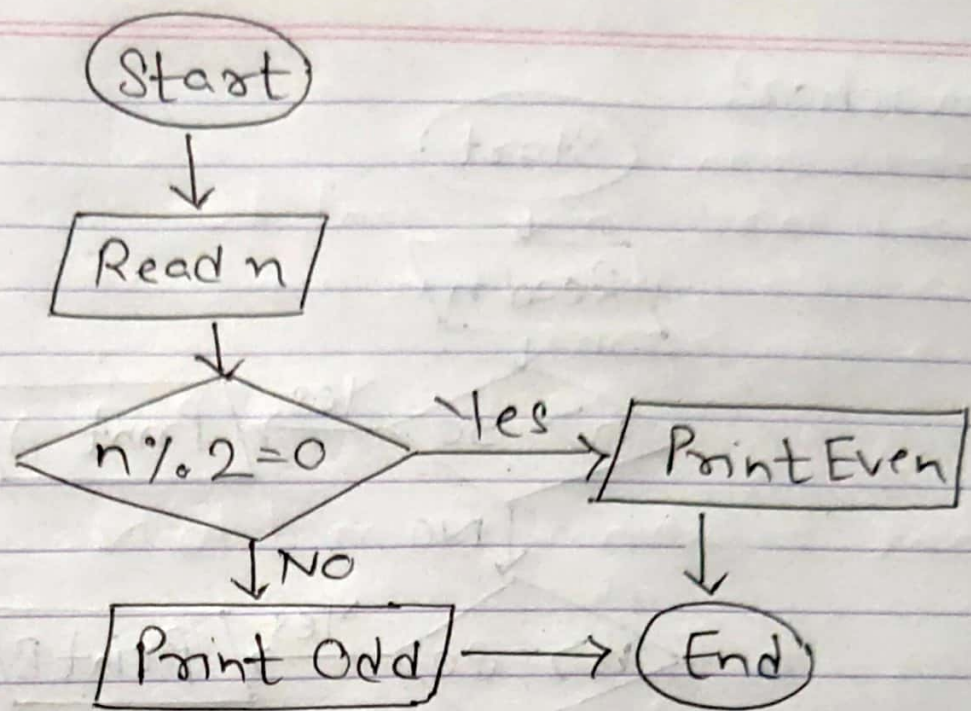 Start
Read n
n%2=0
Yes
Print Even
NO
Print Odd
End